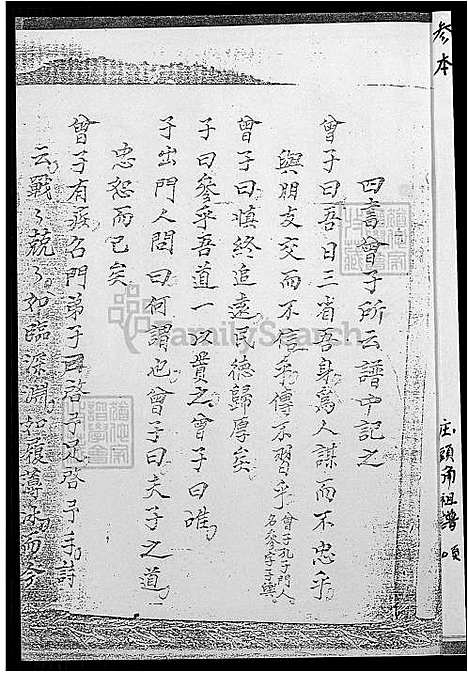 參本
庄頭角祖譜
四書曾子所云譜中記之
曾子曰吾日三省吾身為人謀而不忠乎
與朋友交而不信乎傳不習乎
曾子孔子門人
名參字子輿
曾子曰慎終追遠民德歸厚矣
子曰參乎吾道一以貫之曾子曰唯
子出門人問曰何謂也曾子曰夫子之道
忠恕而已矣
曾子有疾名門弟子曰啓予足啓予手詩
云戰々兢々如臨深淵如履薄冰而今
FamilySearch